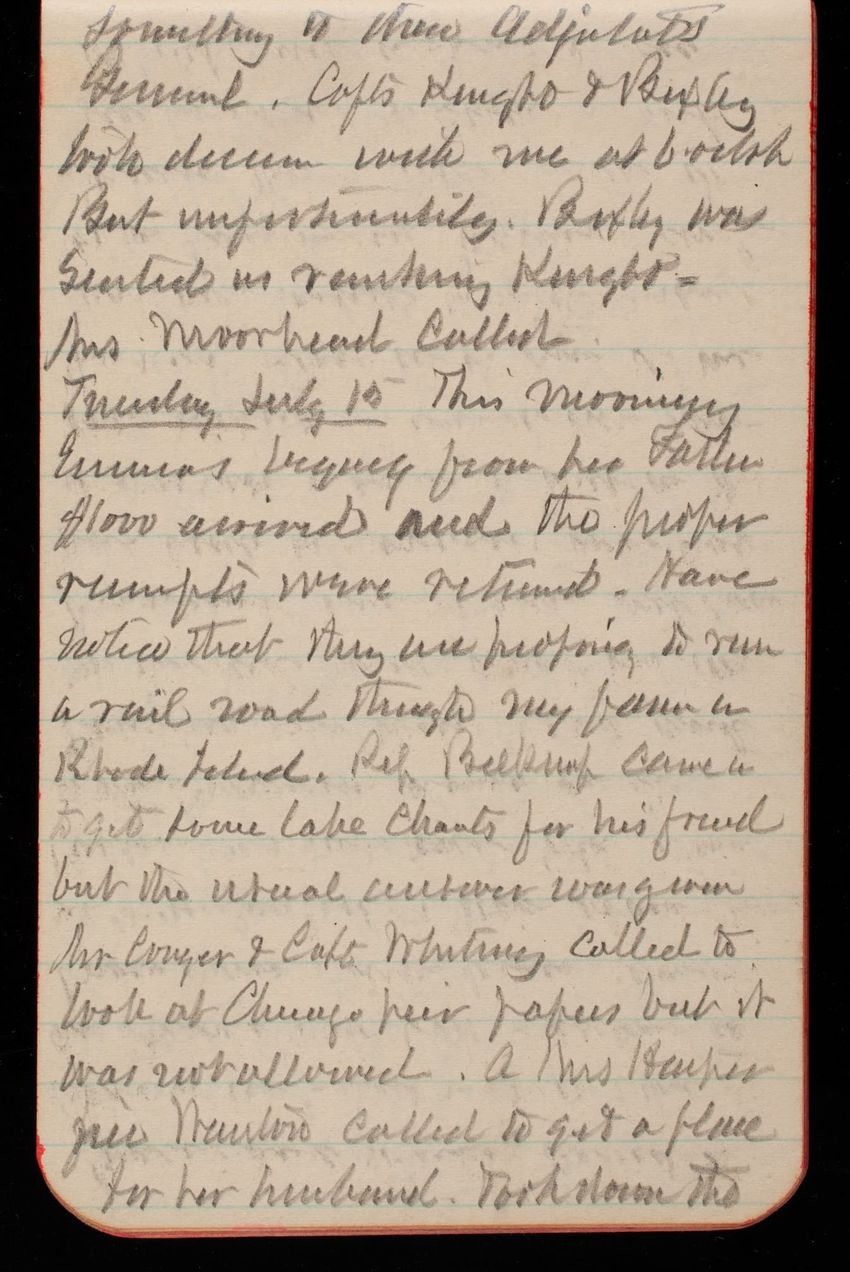 something to three Adjutats
General. Capts Knight & Bixby
took dinner with me at 6 oclok
But unfortunately. Bixby was
Seated as ranking Knight =
Mrs. Moorhead Called
Tuesday July 15 This morning
Emma's legacy from her Father
$1000 arrived and the proper
receipts were returned. Have
notice that they are proposing to run
a rail road through my farm in
Rhode Island. Rep Belknap came in
to get some lake Charts for his friend
but the usual answer was given
Mr Conger & Capt Whitney called to
look at Chicago pier papers but it
was not allowed. A Mrs Harper
nee Wanton called to get a place
for her husband. Took down the